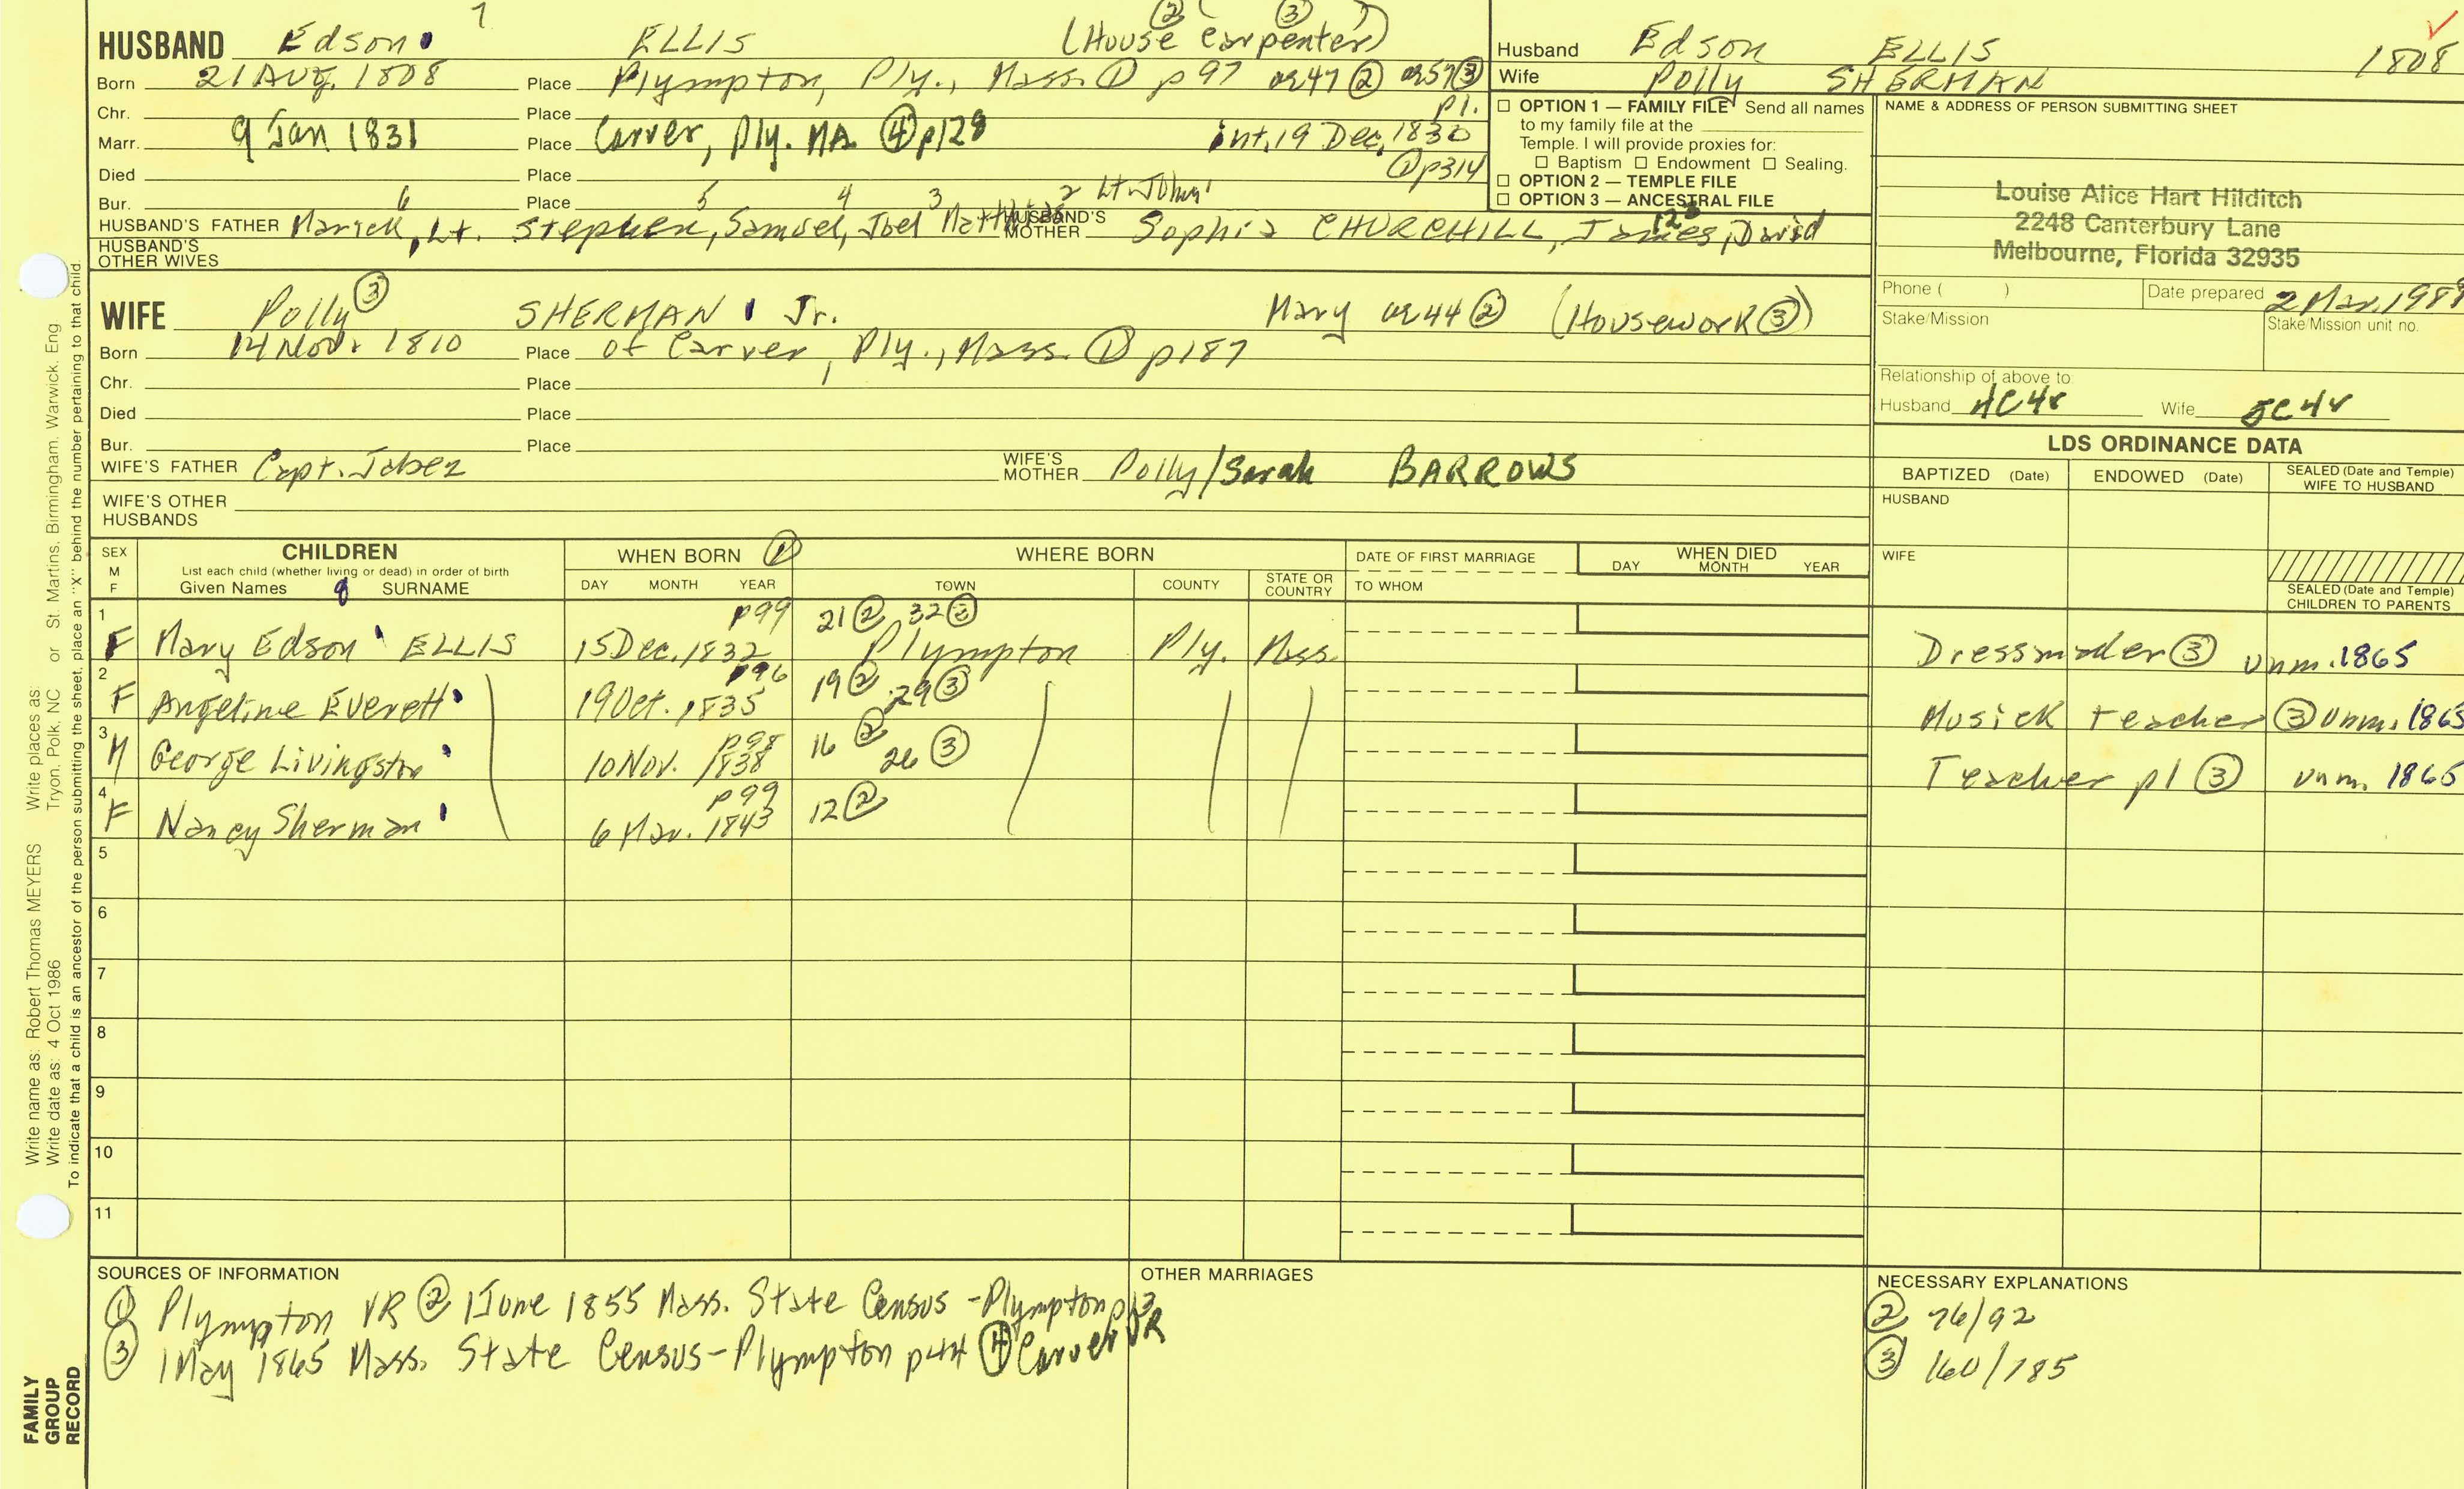 7 (2) (3)
HUSBAND Edson ELLIS (House Carpenter)
Born 21 Aug. 1808 Place Plympton, Ply., Mass. ① p97 ae47 ② ae57 ③
p1.
Chr. Place
Marr. 9 Jan 1831 Place Carver, Ply. MA. ④ p128 int. 19 Dec. 1830
① p314
Died Place
Bur. Place
6 5 4 3 2 Lt. John 1
HUSBAND'S FATHER Marick, Lt. Stephen, Samuel, Joel HUSBAND'S MOTHER Sophia CHURCHILL, James, David
HUSBAND'S OTHER WIVES
Husband Edson ELLIS 1808
Wife Polly SHERMAN
☐ OPTION 1 — FAMILY FILE Send all names
to my family file at the
Temple. I will provide proxies for:
☐ Baptism ☐ Endowment ☐ Sealing.
☐ OPTION 2 — TEMPLE FILE
☐ OPTION 3 — ANCESTRAL FILE
NAME & ADDRESS OF PERSON SUBMITTING SHEET
Louise Alice Hart Hilditch
2248 Canterbury Lane
Melbourne, Florida 32935
Phone ( ) Date prepared 2 Mar. 1989
Stake/Mission Stake/Mission unit no.
Relationship of above to:
Husband 4C4r Wife 5C4r
WIFE Polly ③ SHERMAN Jr. Mary ae44 ② (Housework ③)
Born 14 Nov. 1810 Place of Carver, Ply., Mass. ① p187
Chr. Place
Died Place
Bur. Place
WIFE'S FATHER Capt. Jabez WIFE'S MOTHER Polly/Sarah BARROWS
WIFE'S OTHER HUSBANDS
LDS ORDINANCE DATA
BAPTIZED (Date) ENDOWED (Date) SEALED (Date and Temple) WIFE TO HUSBAND
HUSBAND
WIFE
SEALED (Date and Temple) CHILDREN TO PARENTS
SEX M F
CHILDREN
List each child (whether living or dead) in order of birth
Given Names 8 SURNAME
WHEN BORN ①
DAY MONTH YEAR
WHERE BORN
TOWN COUNTY STATE OR COUNTRY
DATE OF FIRST MARRIAGE
TO WHOM
WHEN DIED
DAY MONTH YEAR
1 p99 21 ② 32 ③
F Mary Edson ELLIS 15 Dec. 1832 Plympton Ply. Mass. Dressmaker ③ unm. 1865
2 p96 19 ② 29 ③
F Angeline Everett 19 Oct. 1835 Musick teacher ③ unm. 1865
3 p98 16 ② 26 ③
M George Livingston 10 Nov. 1838 Teacher p1 ③ unm. 1865
4 p99 12 ②
F Nancy Sherman 6 Mar. 1843
5
6
7
8
9
10
11
SOURCES OF INFORMATION
① Plympton VR ② 1 June 1855 Mass. State Census - Plympton p13
③ 1 May 1865 Mass. State Census - Plympton p44 ④ Carver VR
OTHER MARRIAGES
NECESSARY EXPLANATIONS
② 76/92
③ 160/185
Write name as: Robert Thomas MEYERS Write places as:
Write date as: 4 Oct 1986 Tryon, Polk, NC or St. Martins, Birmingham, Warwick, Eng
To indicate that a child is an ancestor of the person submitting the sheet, place an "X" behind the number pertaining to that child.
FAMILY
GROUP
RECORD